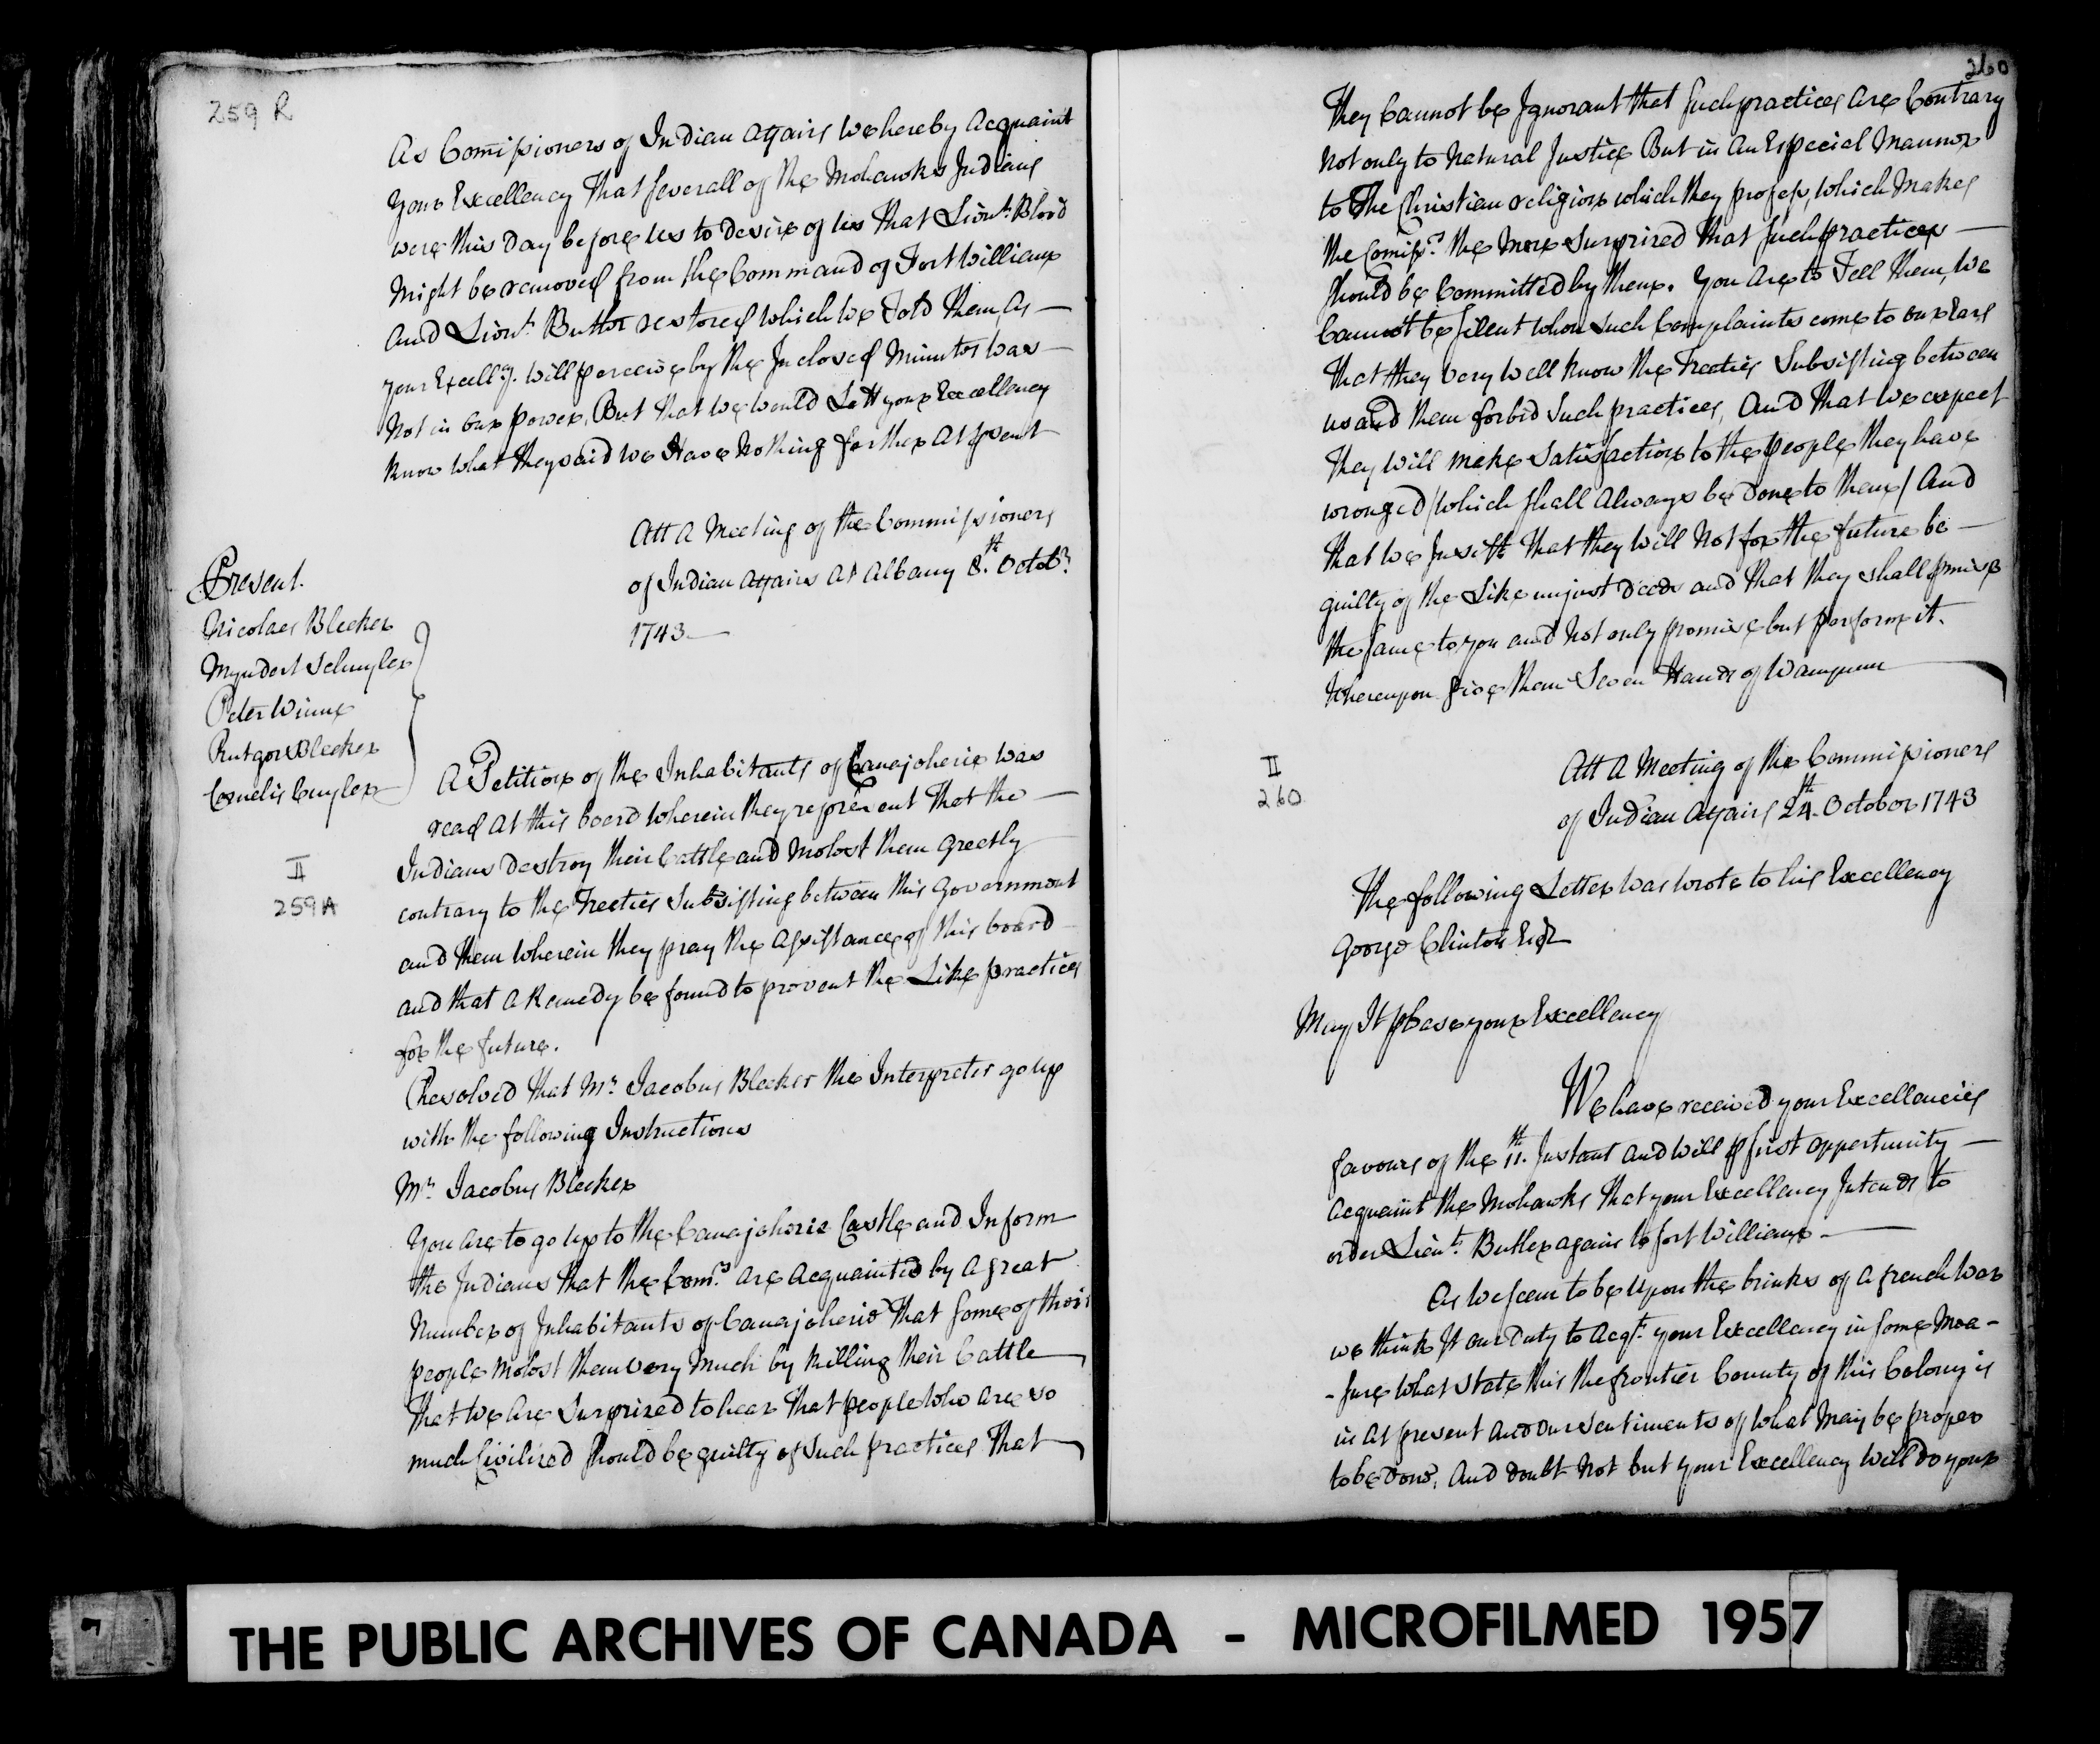 259 R
As Comissioners of Indian Affairs we hereby Acquaint
Your Excellency That severall of the Mohawks Indians
were this Day before us to desire of us That Lieut. Blood
Might be removed from the Command of Fort William
And Lieut. Butler restored which we Told Them, As —
your Excellcy. will perceive by the Inclosed Minutes was —
Not in our power, But that we would Lett your Excellency
know what they said we Have Nothing farther At psent
Att A Meeting of the Commissioners
of Indian Affairs At Albany 8.th Octobr.
1743 —
Present.
Nicolaes Bleeker
Myndert Schuyler
Peter Winne
Rutger Bleeker
Cornelis Cuyler
A Petition of the Inhabitants of Canajoherie was
read At this board wherein they represent That the —
II
259A
Indians Destroy their Cattle and Molest them greetly
contrary to the Treaties Subsisting between this Government
and them wherein they pray the Assistance of this board
and that a Remedy be found to prevent the Like practices
for the future.
Resolved That Mr. Jacobus Bleeker the Interpreter go up
with the following Instructions
Mr. Jacobus Bleeker
You are to go up to the Canajoherie Castle and Inform
the Indians That the Comrs. are Acquainted by A great
Number of Inhabitants of Canajoherie That some of their
people Molest them very much by killing their Cattle
That we Are Surprized to hear That people who are so
much Civilized should be guilty of such practices That
260
They Cannot be Ignorant that such practices are Contrary
Not only to Natural Justice But in An Especial Mannor
to The Christian religion which they profess, which Makes
the Comissrs. the More Surprized That such practices —
should be Committed by them. You Are to Tell them, we
Cannot be silent when such Complaints come to our Ears
That they very well know the Treaties Subsisting between
us and them forbid such practices, And That we expect
They will make satisfaction to the people they have
wronged /which shall Always be done to them/ And
That we Insist That they will Not for the future be —
guilty of the Like unjust Deeds and that they shall pmise
the same to you and Not only promise but perform it.
Whereupon give them Seven Hands of Wampum
II
260
Att A Meeting of the Commissioners
of Indian Affairs 24.th October 1743
The following Letter was wrote to his Excellency
George Clinton Esqr.
May It please your Excellency
We have received your Excellencies
favours of the 11.th Instant and will p first opportunity —
Acquaint the Mohawks That your Excellency Intends to
order Lieut. Butler again to fort William —
As we seem to be upon the brinks of a french War
we think It our Duty to Acqt. your Excellency in some Mea-
-sure what state this the frontier County of this Colony is
in At present and our sentiments of what May be proper
to be done, And doubt Not but your Excellency will do your
THE PUBLIC ARCHIVES OF CANADA - MICROFILMED 1957